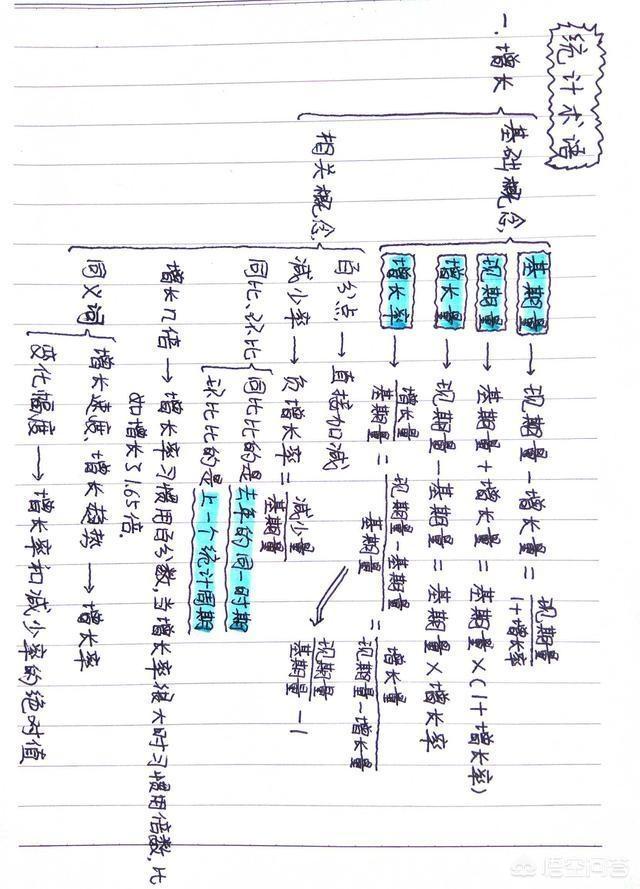 统计术语
一.增长
基础概念
基期量 → 现期量-增长量=现期量/1+增长率
现期量 → 基期量+增长量=基期量×(1+增长率)
增长量 → 现期量-基期量=基期量×增长率
增长率 → 增长量/基期量=现期量-基期量/基期量=增长量/现期量-增长量
现期量/基期量-1
相关概念
百分点 → 直接加减
减少率 → 负增长率=减少量/基期量
同比、环比
同比比的是去年的同一时期
环比比的是上一个统计周期
增长几倍 → 增长率习惯用百分数,当增长率很大时习惯用倍数,比
如增长了1.65倍.
同义词
增长速度、增长趋势 → 增长率
变化幅度 → 增长率和减少率的绝对值
悟空问答